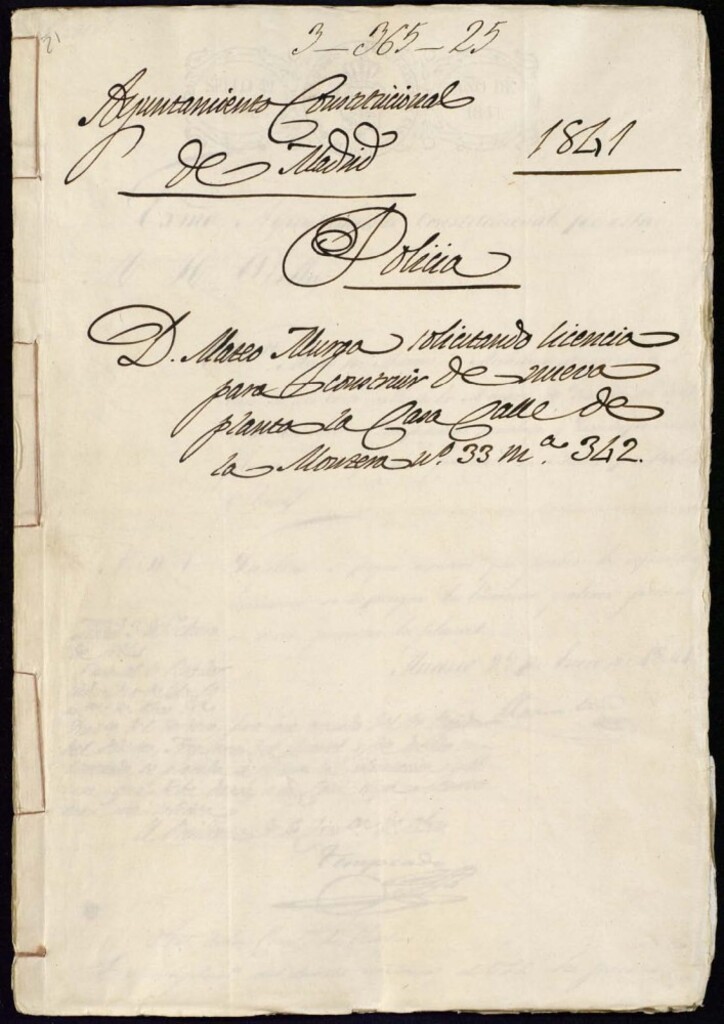 3-365-25
Ayuntamiento Constitucional
de Madrid
1841
Policia
D. Mateo Murga solicitando licencia
para construir de nueva
planta la Casa Calle de
la Montera nº. 33 mª. 342.